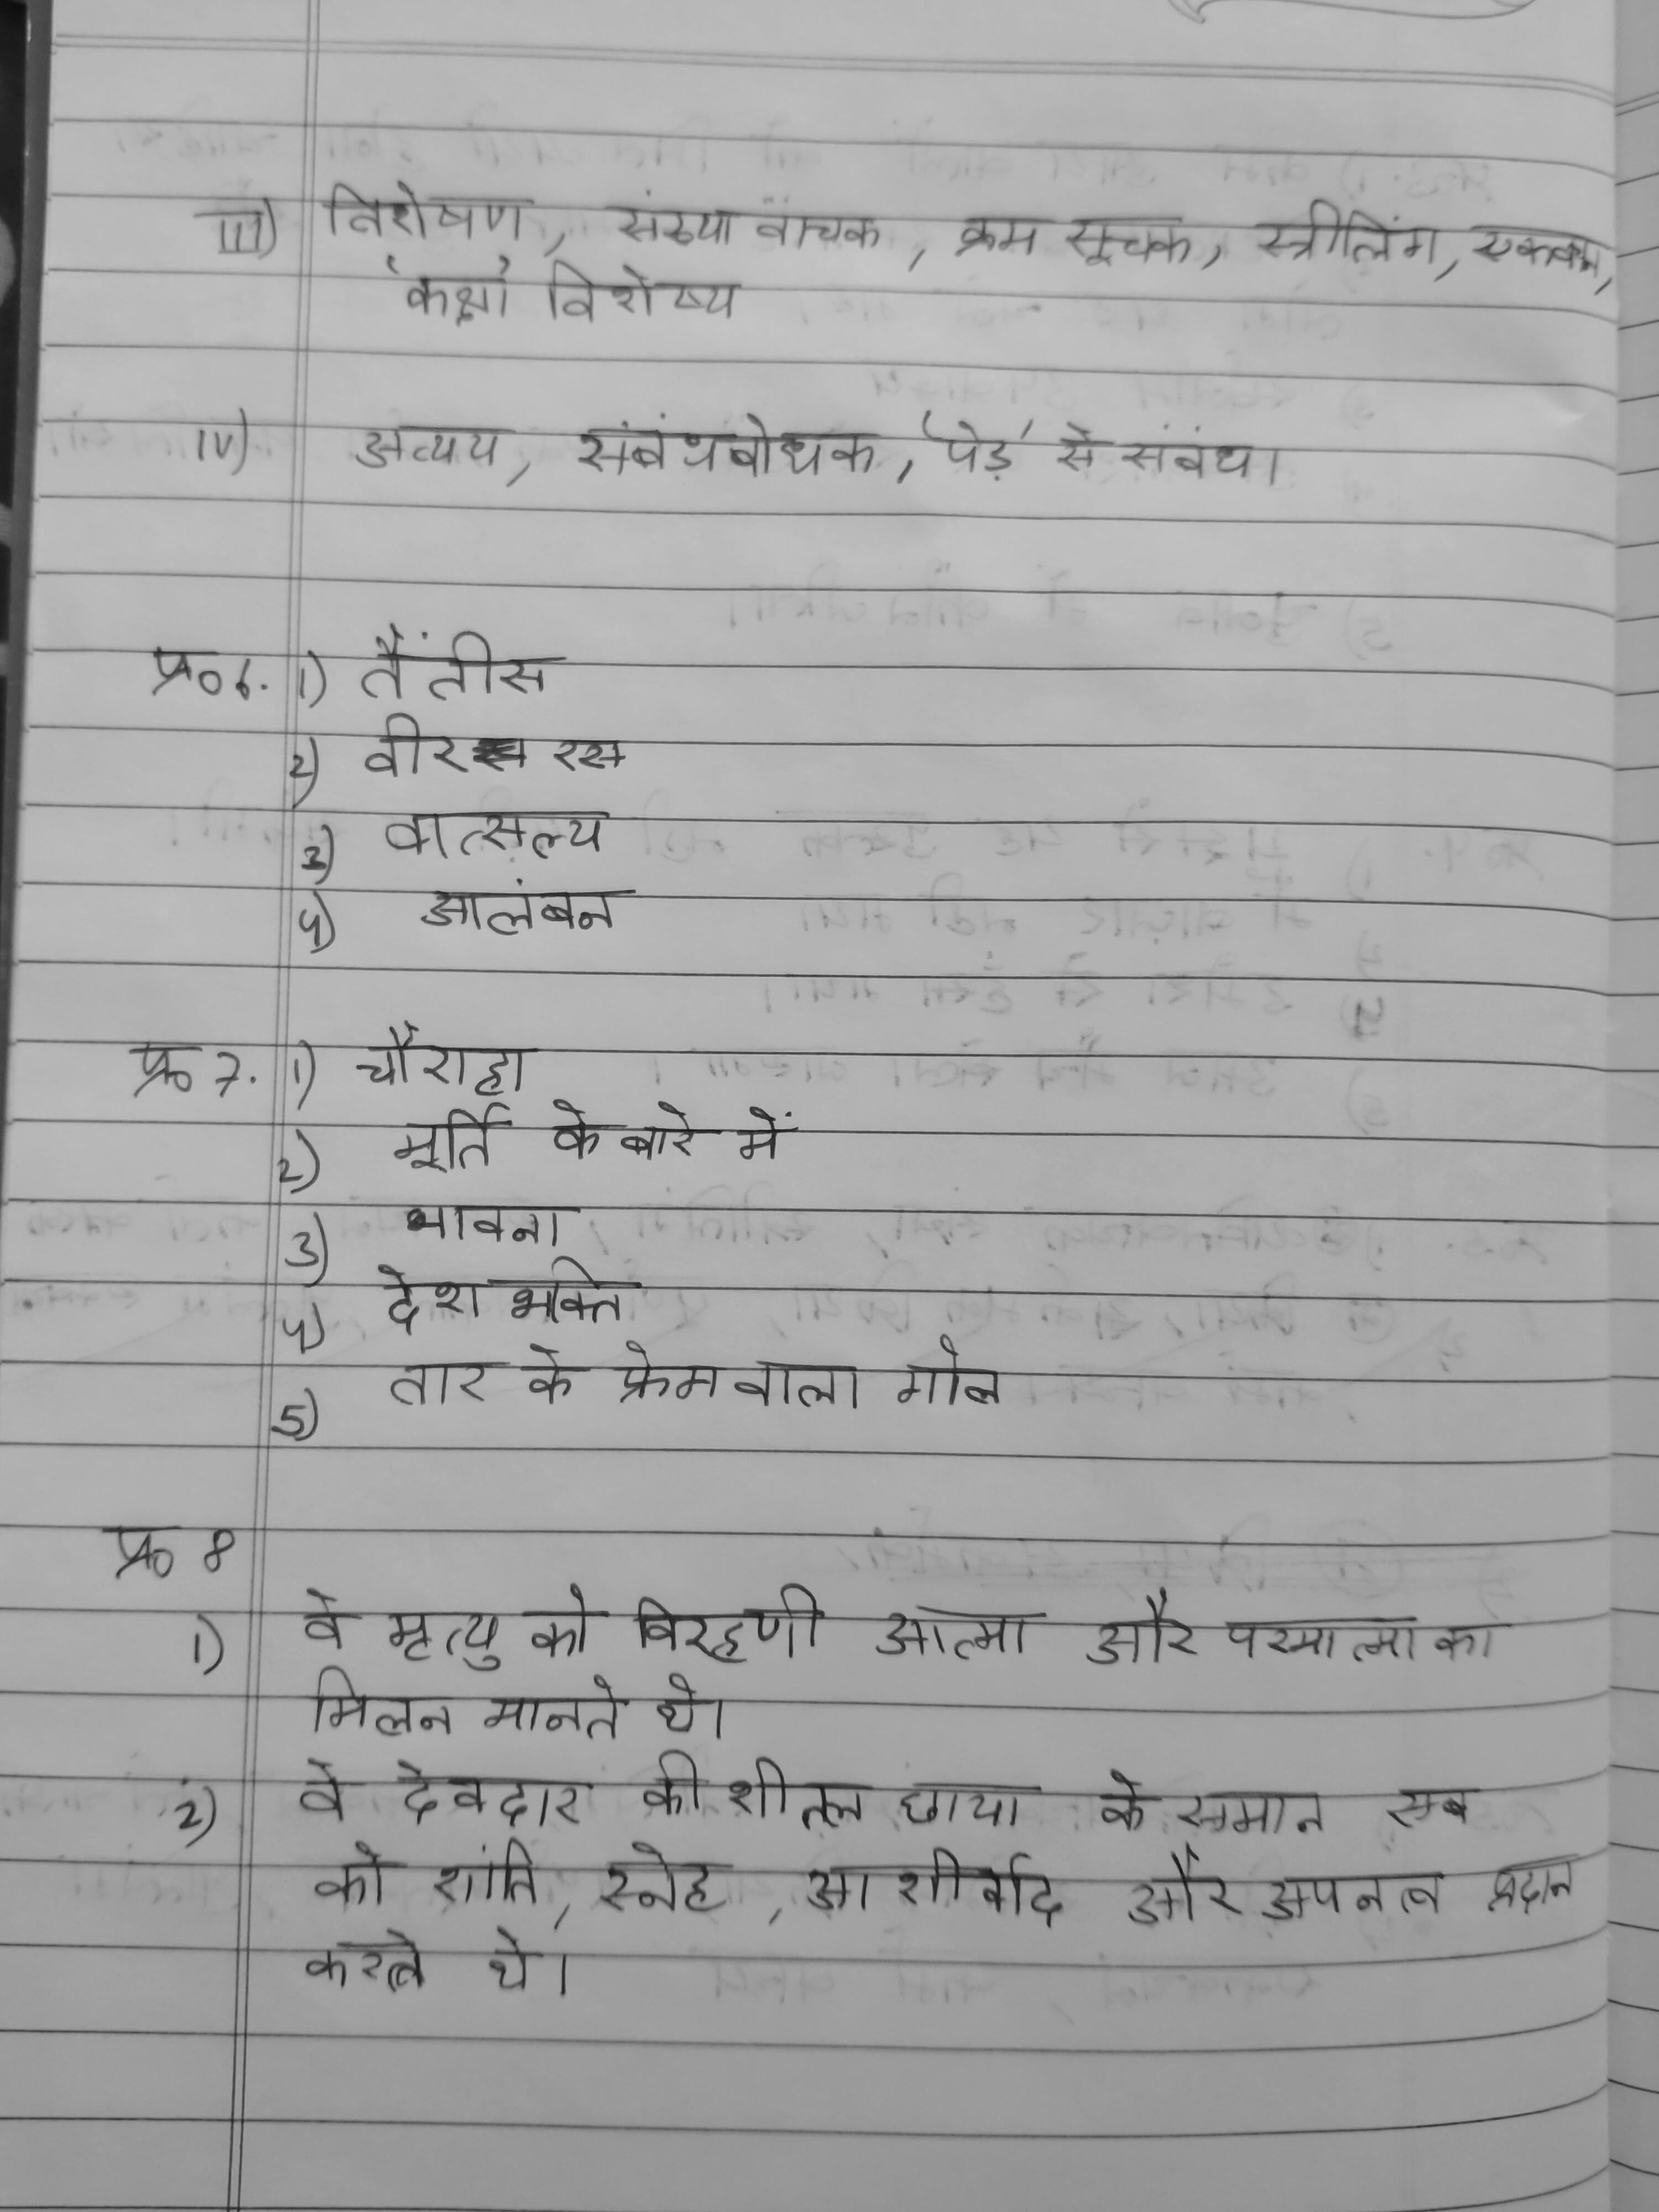 III) विशेषण, संख्या वाचक, क्रम सूचक, स्त्रीलिंग,
'कक्षा' विशेष्य
IV) अव्यय, संबंधबोधक, 'पेड़' से संबंध।
प्र०6. 1) तैंतीस
2) वीर रस
3) वात्सल्य
4) आलंबन
प्र० 7. 1) चौराहा
2) मूर्ति के बारे में
3) भावना
4) देश भक्ति
5) तार के फ्रेम वाला गोल
प्र० 8
1) वे मृत्यु को विरहणी आत्मा और परमात्मा का
मिलन मानते थे।
2) वे देवदार की शीतल छाया के समान सब
को शांति, स्नेह, आशीर्वाद और अपनत्व प्रदान
करते थे।